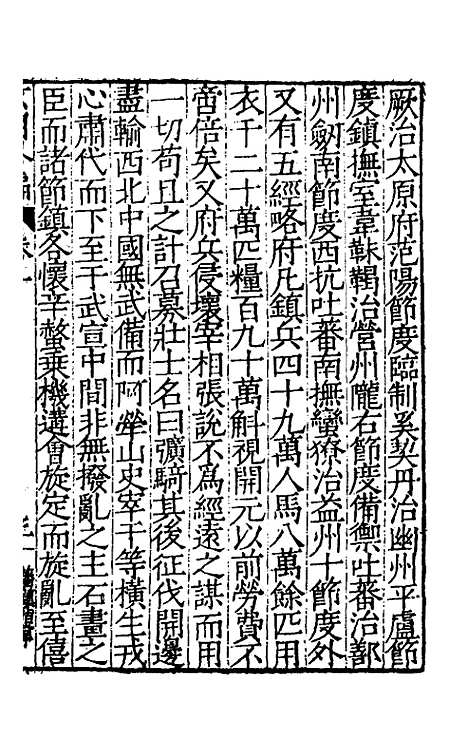 厥治太原府范陽節度臨制奚契丹治幽州平盧節
度鎮撫室韋靺鞨治營州隴右節度備禦吐蕃治鄯
州劒南節度西抗吐蕃南撫蠻獠治益州十節度外
又有五經略府凡鎮兵四十九萬人馬八萬餘匹用
衣千二十萬匹糧百九十萬斛視開元以前勞費不
啻倍矣又府兵侵壞宰相張說不爲經遠之謀而用
一切苟且之計召募壯士名曰彍騎其後征伐開邊
盡輸西北中國無武備而阿犖山史窣干等橫生戎
心肅代而下至于武宣中間非無撥亂之主石畫之
臣而諸節鎮各懷辛螫乗機遘會旋定而旋亂至僖